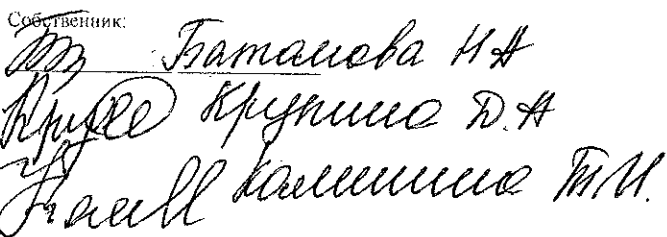 Собственник:
Баталова Н А
Крупина Д. А
Калинина Т.И.